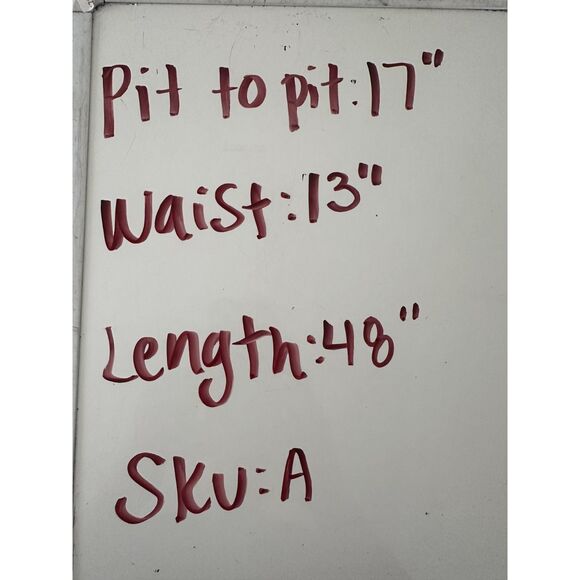 Pit to pit:17"
Waist:13"
Length:48"
SKU:A